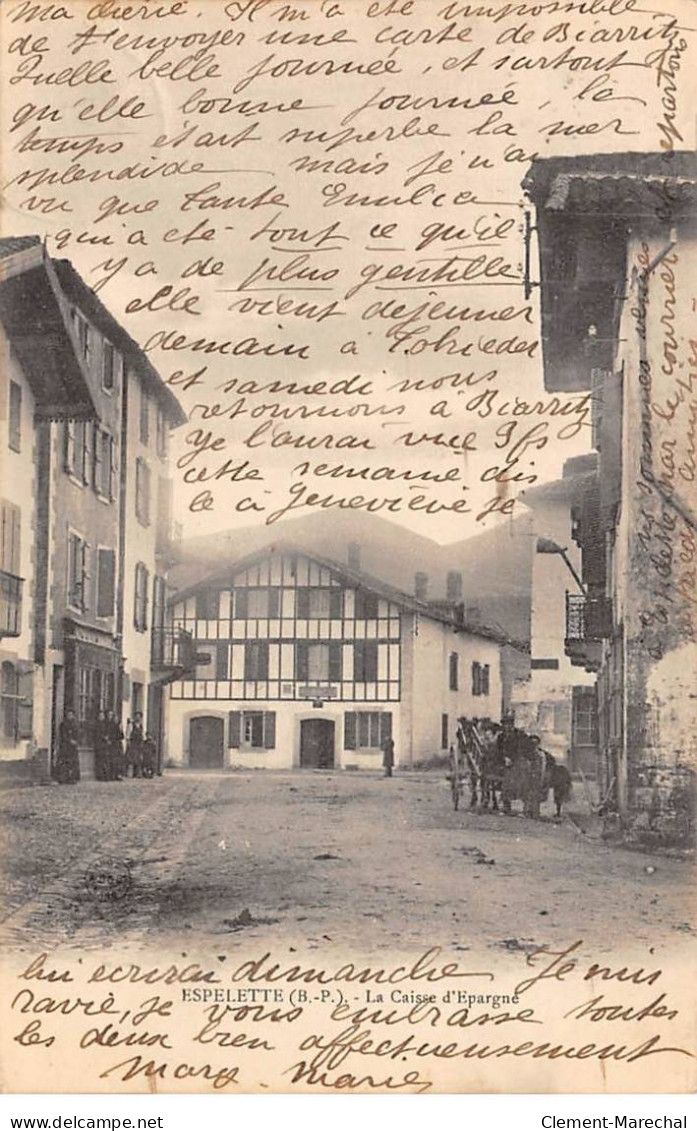 Ma chérie. Il m'a été impossible
de t'envoyer une carte de Biarritz
Quelle belle journée, et surtout
qu'elle bonne journée, la
temps était superbe la mer
splendide mais je n'ai
vu que tante Emilia
qui a été tout ce qu'il
y a de plus gentille
elle vient déjeuner
demain à
et samedi nous
retournons à Biarritz
je l'aurai vue 3 fs
cette semaine dis
le à Geneviève je
lui écrirai dimanche Je suis
ESPELETTE (B.-P.). - La Caisse d'Epargne
ravie, je vous embrasse toutes
les deux bien affectueusement
Marie
repartons
sommes venues
par le courrier
Clement-Marechal
www.delcampe.net